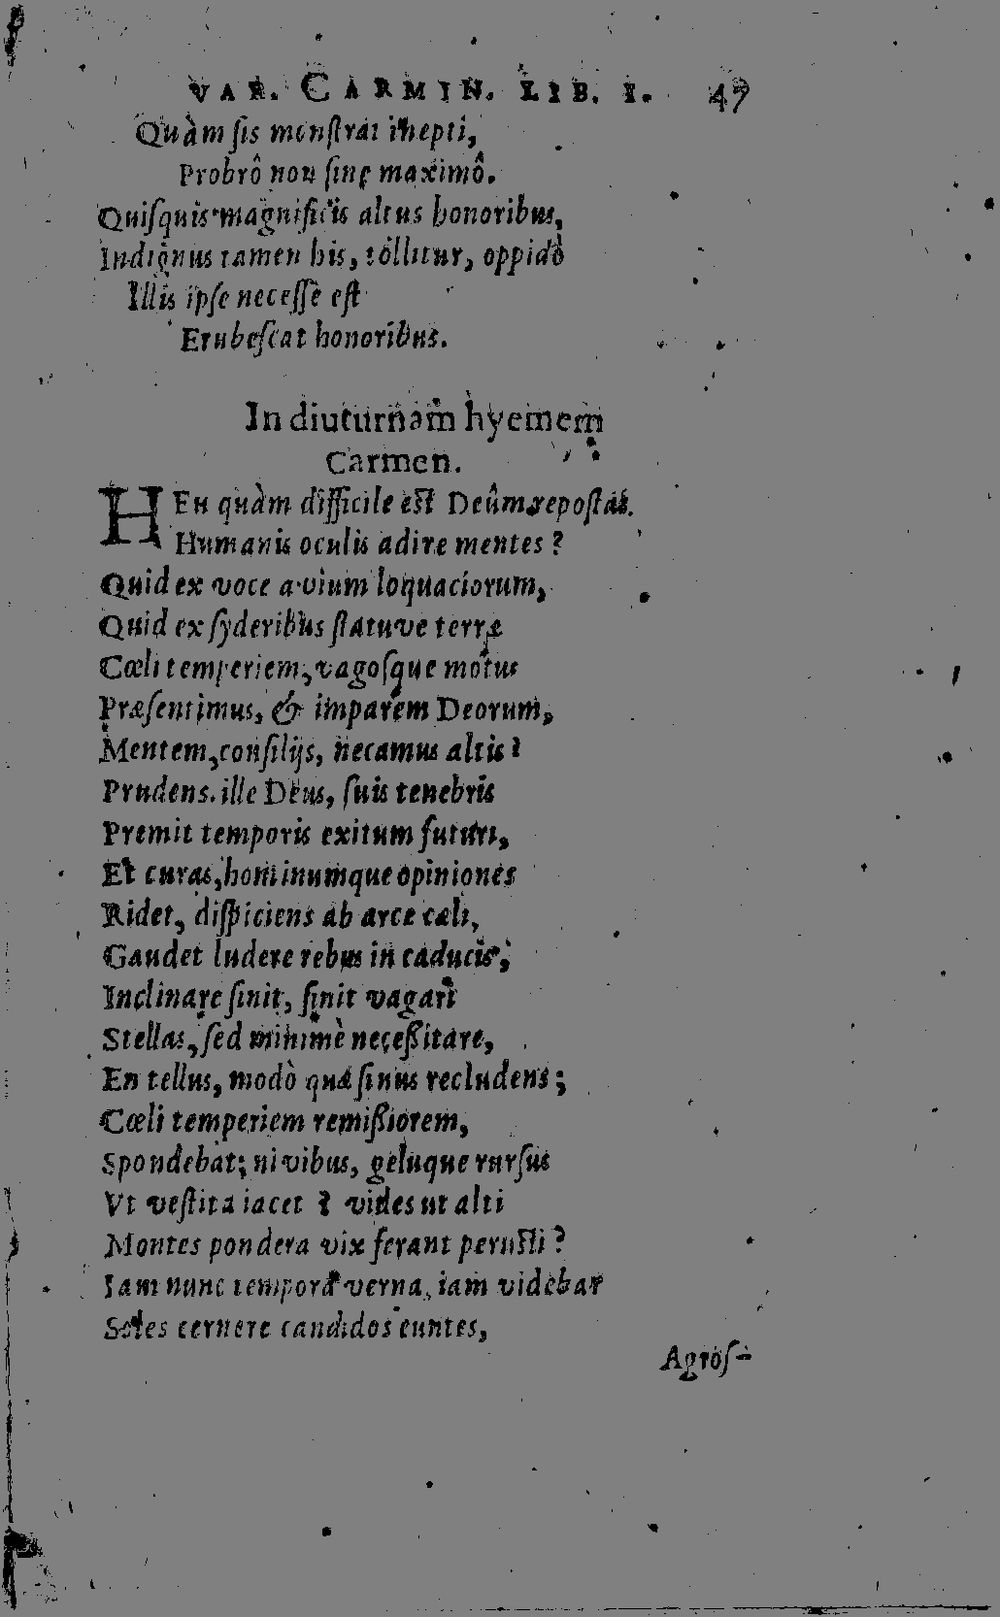 VAR. CARMIN. LIB. I. 47
Quàm ſis monſtrat inepti,
Probrô non ſine maximô.
Quiſquis magnificis altus honoribus,
Indignus tamen his, tollitur, oppidò
Illis ipſe neceſſè eſt
Erubeſcat honoribus.
In diuturnam hyemem
Carmen.
HEu quàm difficile est Deûm repoſtas.
Humanis oculis adire mentes?
Quid ex voce avium loquaciorum,
Quid ex ſyderibus ſtatuve terræ
Cœli temperiem, vagoſque motus
Præſentimus, & imparem Deorum,
Mentem, conſilijs, necamus altis?
Prudens. ille Deus, ſuis tenebris
Premit temporis exitum futuri,
Et curas, hominumque opiniones
Ridet, diſpiciens ab arce cæli,
Gaudet ludere rebus in caducis;
Inclinare ſinit, ſinit vagari
Stellas, ſed minimè neceßitare,
En tellus, modò quæ ſinus recludens;
Cœli temperiem remißiorem,
Spondebat; nivibus, geluque rurſus
Vt veſtita iacet? vides ut alti
Montes pondera vix ferant perusti?
Iam nunc tempora verna, iam videbar
Soles cernere candidos euntes,
Agroſ-